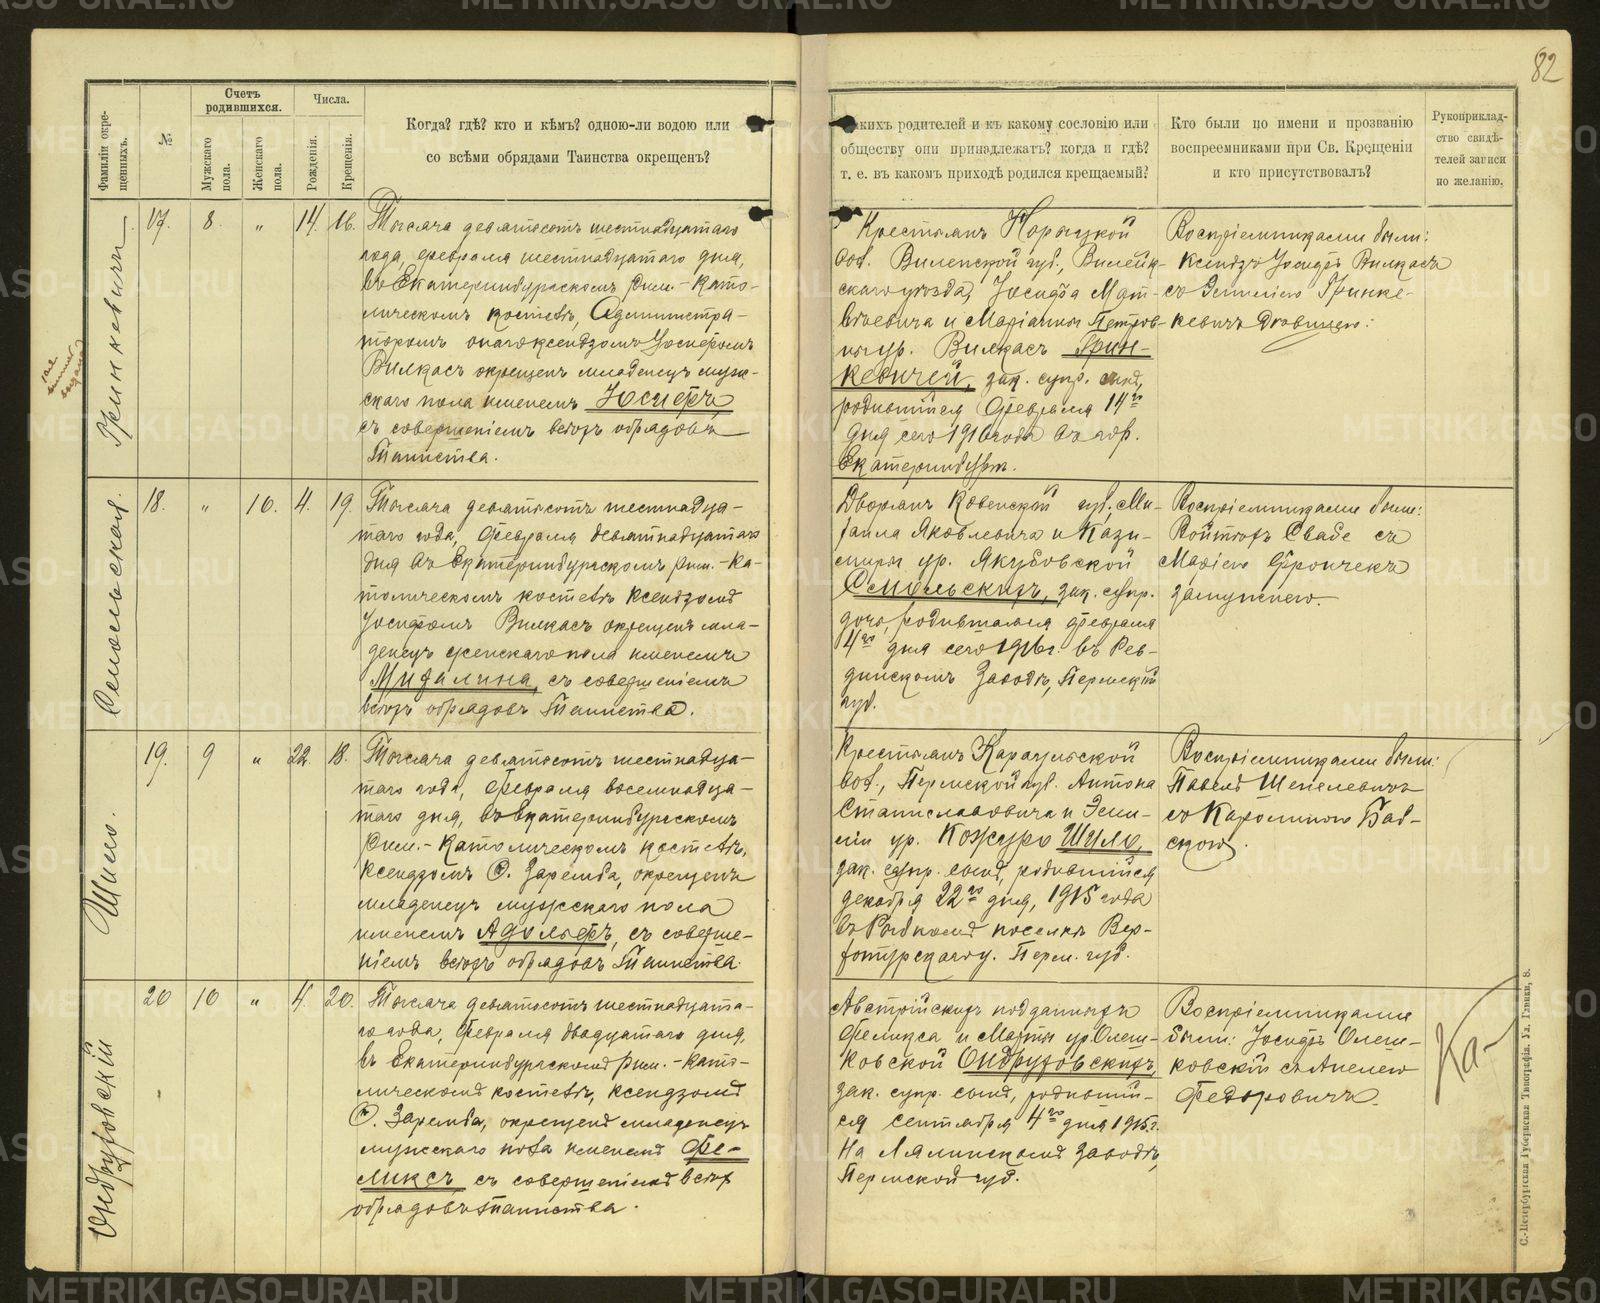 82
Фамиліи окре-
щенныхъ.
№
Счетъ
родившихся.
Мужскаго
пола.
Женскаго
пола.
Числа.
Рожденія.
Крещенія.
Когда? гдѣ? кто и кѣмъ? одною-ли водою или
со всѣми обрядами Таинства окрещенъ?
какихъ родителей и къ какому сословію или
обществу они принадлежатъ? когда и гдѣ?
т. е. въ какомъ приходѣ родился крещаемый?
Кто были по имени и прозванію
воспреемниками при Св. Крещеніи
и кто присутствовалъ?
Рукоприклад-
ство свидѣ-
телей записи
по желанію.
Гринкевичъ
17. 8. „ 14. 16.
Тысяча девятьсотъ шестнадцатаго
года, февраля шестнадцатаго дня,
въ Екатеринбургскомъ Рим.-Като-
лическомъ костелѣ, Администра-
торомъ онаго ксендзомъ Іосифомъ
Вилкасъ окрещенъ младенецъ муж-
скаго пола именемъ Іосифъ
съ совершеніемъ всѣхъ обрядовъ
Таинства.
Крестьянъ
вол. Виленской губ., Вилейк-
скаго уѣзда, Іосифа Мат-
вѣевича и Маріанны Петров-
ны ур. Вилкасъ Грин-
кевичей, зак. супр. сынъ,
родившійся Февраля 14го
дня сего 1916 года въ гор.
Екатеринбургѣ.
Воспріемниками были:
Ксендзъ Іосифъ Вилкасъ
съ Гринке-
кевичъ дѣвицею.
Смольская.
18. „ 10. 4. 19.
Тысяча девятьсотъ шестнадца-
таго года, Февраля девятнадцатаго
дня въ Екатеринбургскомъ Рим.-Ка-
толическомъ костелѣ Ксендзомъ
Іосифомъ Вилкасъ окрещенъ мла-
денецъ женскаго пола именемъ
Михалина, съ совершеніемъ
всѣхъ обрядовъ Таинства.
Дворянъ Ковенской губ. Ми-
хаила Яковлевича и Кази-
миры ур. Якубовской
Смольскихъ, зак. супр.
дочь, родившаяся февраля
4го дня сего 1916 г. въ Рев-
динскомъ Заводѣ, Пермской
губ.
Воспріемниками были:
Войтехъ Свабе съ
Маріею Фрончекъ
замужнею.
Шило.
19. 9 „ 22. 18.
Тысяча девятьсотъ шестнадца-
таго года, Февраля восемнадца-
таго дня, въ Екатеринбургскомъ
Рим.-Католическомъ костелѣ,
Ксендзомъ С. Заремба, окрещенъ
младенецъ мужскаго пола
именемъ Адольфъ, съ соверше-
ніемъ всѣхъ обрядовъ Таинства.
Крестьянъ Карагульской
вол., Пермской губ. Антона
Станиславовича и Эми-
ліи ур. Кожуро Шило,
зак. супр. сынъ, родившійся
декабря 22го дня, 1915 года
въ поселкѣ Вер-
хотурскаго у. Перм. губ.
Воспріемниками были:
Павелъ Шепелевичъ
съ Каролиною Баб-
скою.
Ондруховскій
20 10 „ 4. 20.
Тысяча девятьсотъ шестнадцата-
го года, Февраля двадцатаго дня,
въ Екатеринбургскомъ Рим.-Като-
лическомъ костелѣ, ксендзомъ
С. Заремба, окрещенъ младенецъ
мужскаго пола именемъ Фе-
ликсъ, съ совершеніемъ всѣхъ
обрядовъ Таинства.
Австрійскихъ подданныхъ
Феликса и Марты ур. Олеш-
ковской Ондруховскихъ,
зак. супр. сынъ, родивший-
ся сентября 4го дня 1915 г.
на Лялинскомъ заводѣ,
Пермской губ.
Воспріемниками
были: Іосифъ Олеш-
ковскій съ Анелею
Федоровичъ.
Ка-
С.-Петербургская Губернская Типографія. Ул. Глинки, 8.
METRIKI.GASO-URAL.RU